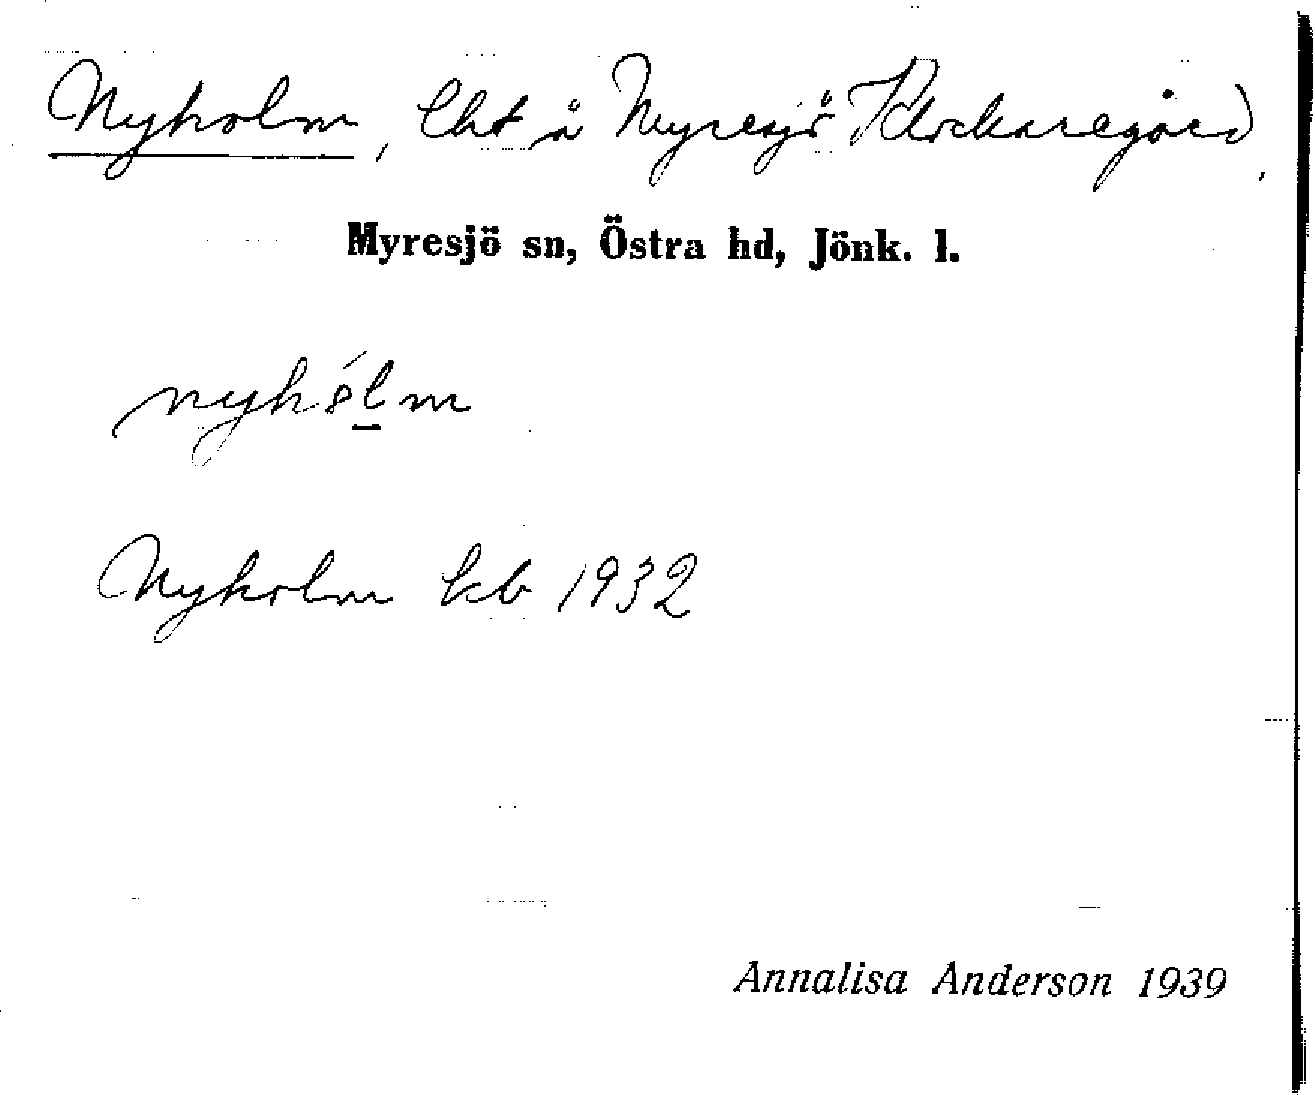 Nyholm, lht å Myresjö Klockaregård,
Myresjö sn, Östra hd, Jönk. l.
nyhólm
Nyholm kb 1932
Annalisa Anderson 1939